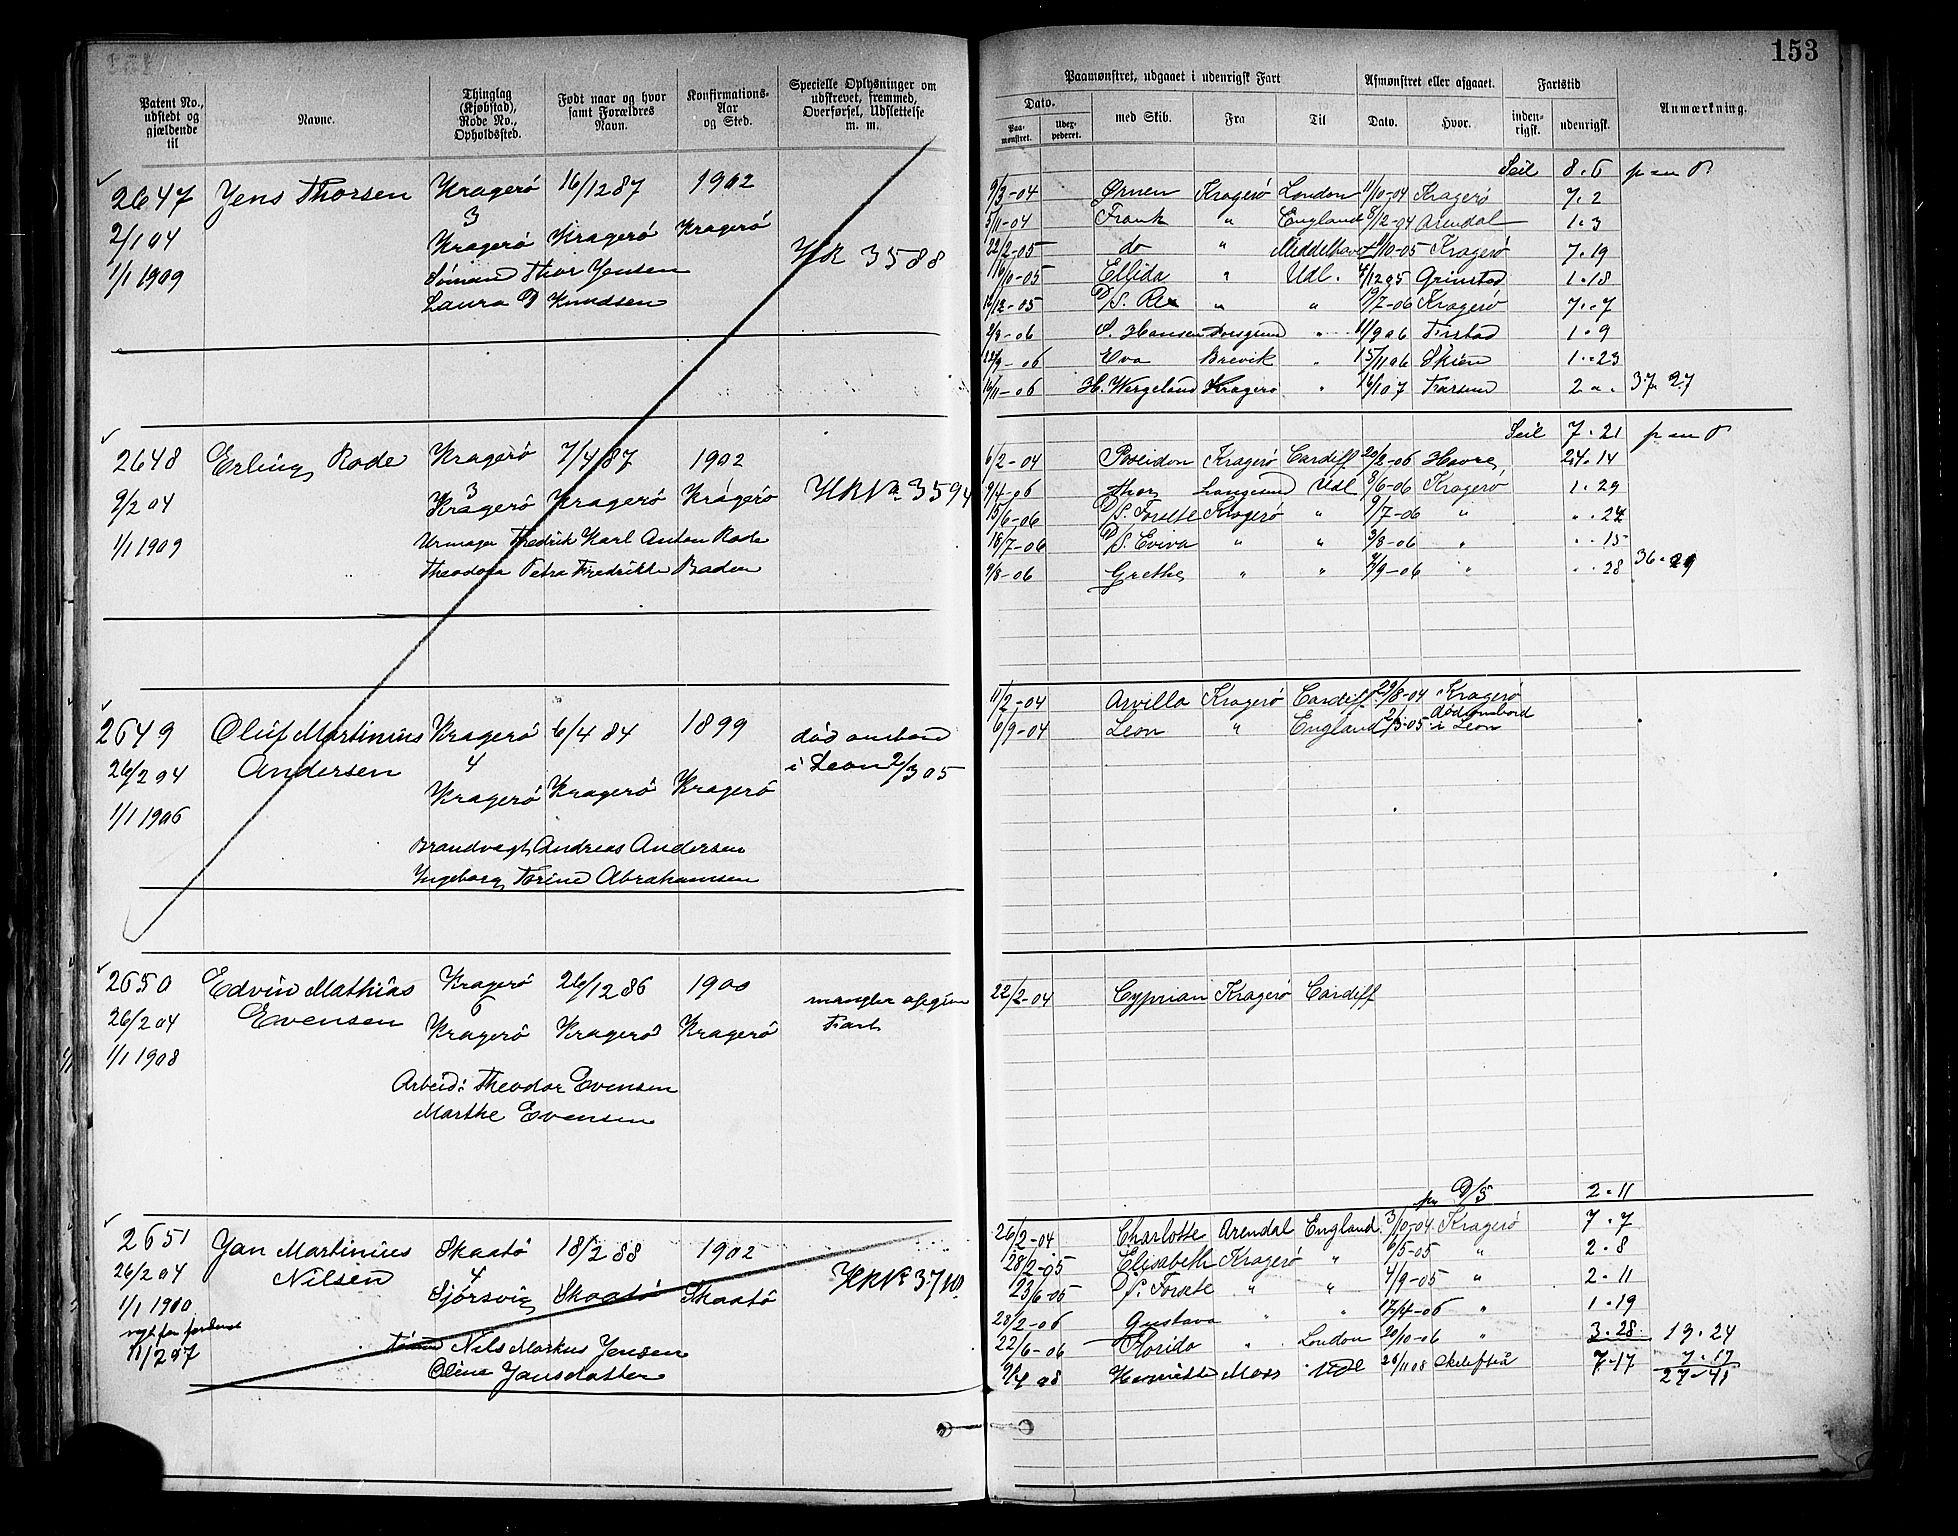 153
Patent No., udstedt og gjældende til
Navne.
Thinglag (Kjøbstad), Rode No., Opholdssted.
Født naar og hvor samt Forældres Navn.
Konfirmations-Aar og Sted.
Specielle Oplysninger om udskrevet, fremmed, Overførsel, Udslettelse m. m.
Paamønstret, udgaaet i udenrigsk Fart
Afmønstret eller afgaaet.
Fartstid
Anmærkning.
Dato.
Paa-mønstret.
Udex-pederet.
med Skib.
Fra
Til
Dato.
Hvor.
inden-rigsk.
udenrigsk.
2647 Jens Thorsen Kragerö 16/12 87 1902
3
2/1 04 Kragerö Kragerö Kragerö
HR 3588
1/1 1909 Sömand Thor Jensen
Laura D Knudsen
Seil 8.6
9/3-04 Ørnen Kragerö London 11/10-04 Kragerö 7.2
5/11-04 Frank " England 8/12-04 Arendal 1.3
22/2-05 do " Middelhavet /10-05 Kragerö 7.19
16/10-05 Ellida " Udl. 4/12 05 Grimstad 1.18
12/12-05 D/S. Rex " " 19/7-06 Kragerö 7.7
9/8-06 S. Hansen Porsgrund " 11/9 06 1.9
22/9-06 Eva Brevik " 15/11 06 Skien 1.23
16/11-06 H. Wergeland Kragerö " 16/1 07 Farsund 2 " . 37.27
2648 Erling Rode Kragerö 7/4 87 1902
3
9/2 04 Kragerö Kragerö Kragerö
HR No 3594
1/1 1909 Urmager Fredrik Karl Anton Rode
Theodora Petra Fredrikke Baden
Seil 7.21
6/2-04 Poseidon Kragerö Cardiff 20/2-06 Havre 24.14
9/4-06 Thor Langesund Udl 8/6-06 Kragerö 1.29
15/6-06 D/S. Forsete Kragerö " 9/7-06 " ". 24
18/7-06 D/S. Eviva " " 3/8-06 " ". 15
9/8-06 Grethe " " 7/9-06 " ". 28 36.
2649 Oluf Martinius Kragerö 6/4 84 1899 död ombord
26/2 04 Andersen 4 i Leon 2/3 05
Kragerö Kragerö Kragerö
1/1 1906
Brandvagt Andreas Andersen
Ingeborg Torine Abrahamsen
11/2-04 Arvilla Kragerö Cardiff 29/8-04 Kragerö
6/9-04 Leon " England 2/3-05 död ombord i Leon
2650 Edvin Mathias Kragerö 26/12 86 1900 mangler opgivn
26/2 04 Evensen 6 Fart
Kragerö Kragerö Kragerö
1/1 1908
Arbeid: Theodor Evensen
Marthe Evensen
22/2-04 Cyprian Kragerö Cardiff
2651 Jan Martinius Skaatö 18/2 88 1902
26/2 04 Nilsen 4
1/1 1910 Sjörsvig Skaatö Skaatö
HR No 3710
11/2 97 Nils Markus Jensen
Oline Jansdatter
D/S 2.11
26/2-04 Charlotte Arendal England 3/10-04 Kragerö 7.7
28/2-05 Elisabeth Kragerö " 6/5-05 " 2.8
23/6-05 D/S. Forsete " " 4/9-05 " 2.11
28/2-06 Gustava " " 17/4-06 " 1.19
22/6-06 Florida " London 20/10-06 " 3.28 19.24
9/4 08 Henriette Moss Udl 26/11 08 Skelefteå 7.17 7.17
27.41